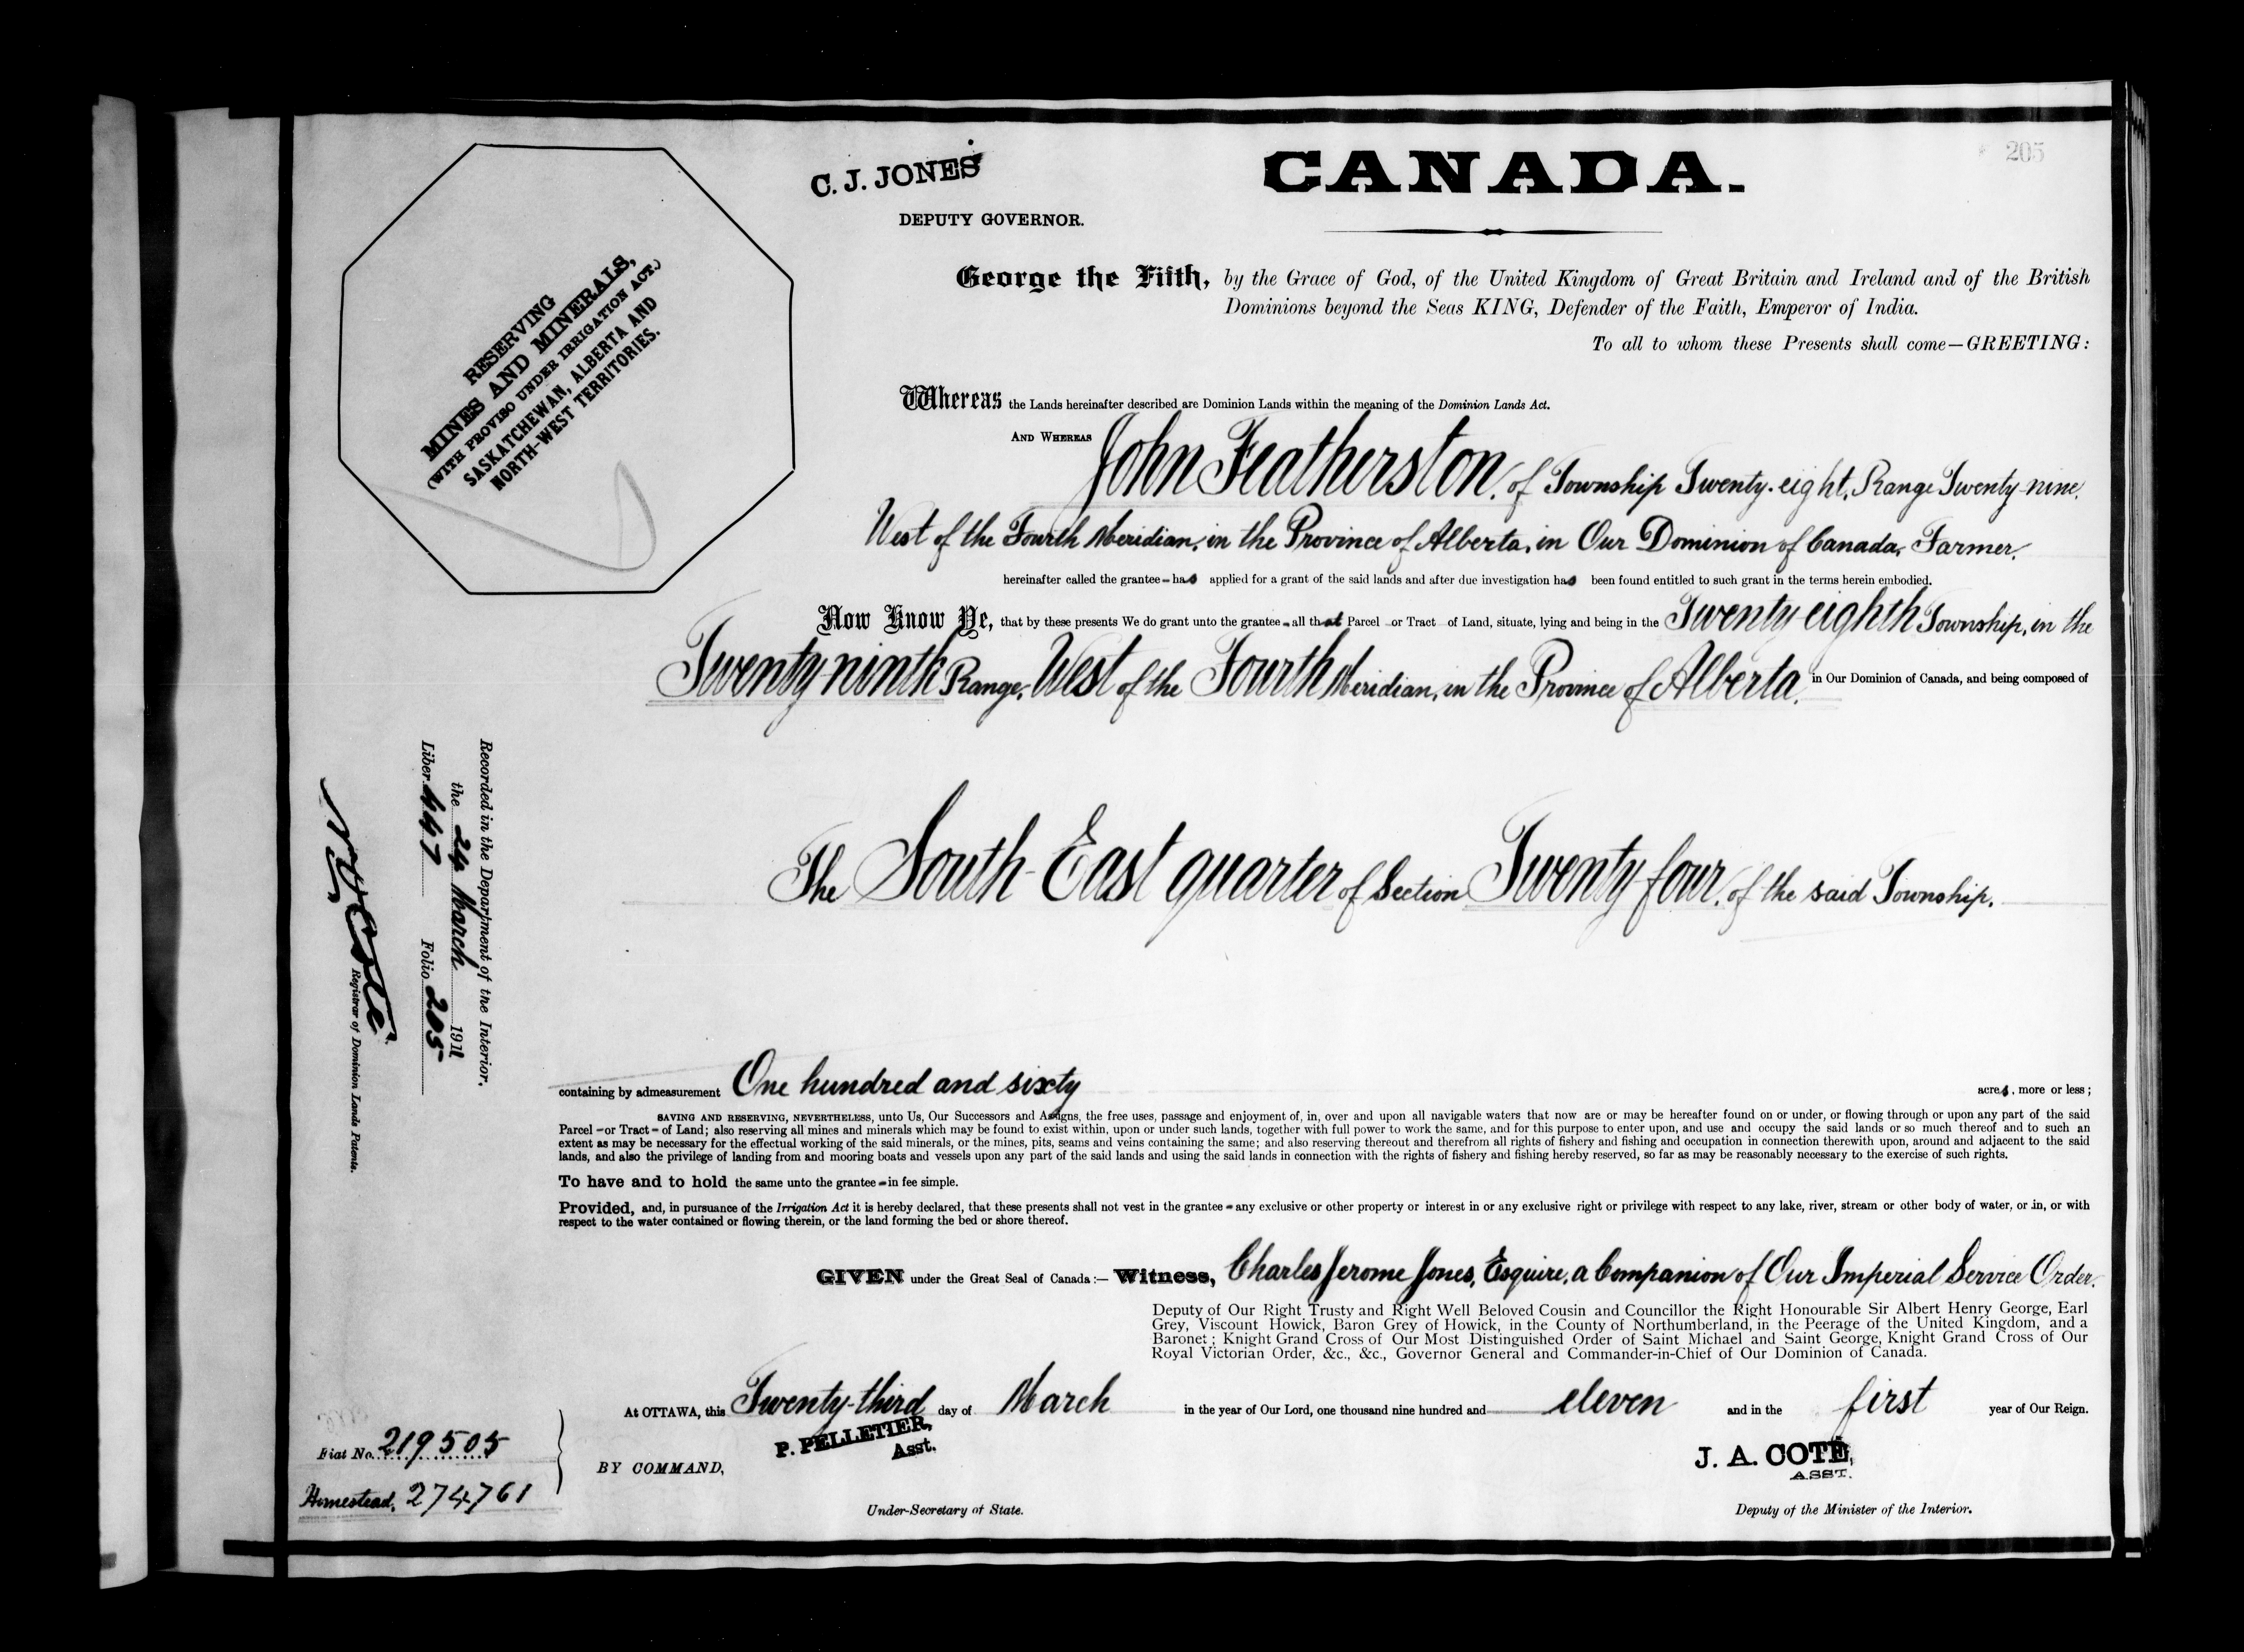 205
C. J. JONES
DEPUTY GOVERNOR.
CANADA.
RESERVING
MINES AND MINERALS,
(WITH PROVISO UNDER IRRIGATION ACT.)
SASKATCHEWAN, ALBERTA AND
NORTH-WEST TERRITORIES.
George the Fifth, by the Grace of God, of the United Kingdom of Great Britain and Ireland and of the British
Dominions beyond the Seas KING, Defender of the Faith, Emperor of India.
To all to whom these Presents shall come—GREETING:
Whereas the Lands hereinafter described are Dominion Lands within the meaning of the Dominion Lands Act.
AND WHEREAS John Featherston, of Township Twenty-eight, Range Twenty-nine,
West of the Fourth Meridian, in the Province of Alberta, in Our Dominion of Canada, Farmer,
hereinafter called the grantee – has applied for a grant of the said lands and after due investigation has been found entitled to such grant in the terms herein embodied.
Now Know Ye, that by these presents We do grant unto the grantee – all that Parcel or Tract of Land, situate, lying and being in the Twenty-eighth Township, in the
Twenty-ninth Range, West of the Fourth Meridian, in the Province of Alberta, in Our Dominion of Canada, and being composed of
The South-East quarter of Section Twenty-four, of the said Township,
Recorded in the Department of the Interior,
the 24 March 1911
Liber 447 Folio 205
Registrar of Dominion Lands Patents.
containing by admeasurement One hundred and sixty acres, more or less;
SAVING AND RESERVING, NEVERTHELESS, unto Us, Our Successors and Assigns, the free uses, passage and enjoyment of, in, over and upon all navigable waters that now are or may be hereafter found on or under, or flowing through or upon any part of the said
Parcel – or Tract – of Land; also reserving all mines and minerals which may be found to exist within, upon or under such lands, together with full power to work the same, and for this purpose to enter upon, and use and occupy the said lands or so much thereof and to such an
extent as may be necessary for the effectual working of the said minerals, or the mines, pits, seams and veins containing the same; and also reserving thereout and therefrom all rights of fishery and fishing and occupation in connection therewith upon, around and adjacent to the said
lands, and also the privilege of landing from and mooring boats and vessels upon any part of the said lands and using the said lands in connection with the rights of fishery and fishing hereby reserved, so far as may be reasonably necessary to the exercise of such rights.
To have and to hold the same unto the grantee – in fee simple.
Provided, and, in pursuance of the Irrigation Act it is hereby declared, that these presents shall not vest in the grantee – any exclusive or other property or interest in or any exclusive right or privilege with respect to any lake, river, stream or other body of water, or in, or with
respect to the water contained or flowing therein, or the land forming the bed or shore thereof.
GIVEN under the Great Seal of Canada:— Witness, Charles Jerome Jones, Esquire, a Companion of Our Imperial Service Order,
Deputy of Our Right Trusty and Right Well Beloved Cousin and Councillor the Right Honourable Sir Albert Henry George, Earl
Grey, Viscount Howick, Baron Grey of Howick, in the County of Northumberland, in the Peerage of the United Kingdom, and a
Baronet; Knight Grand Cross of Our Most Distinguished Order of Saint Michael and Saint George, Knight Grand Cross of Our
Royal Victorian Order, &c., &c., Governor General and Commander-in-Chief of Our Dominion of Canada.
At OTTAWA, this Twenty-third day of March in the year of Our Lord, one thousand nine hundred and eleven and in the first year of Our Reign.
Fiat No. 219505
Homestead, 274761
BY COMMAND,
P. PELLETIER,
Asst.
Under-Secretary of State.
J. A. COTÉ,
ASST.
Deputy of the Minister of the Interior.